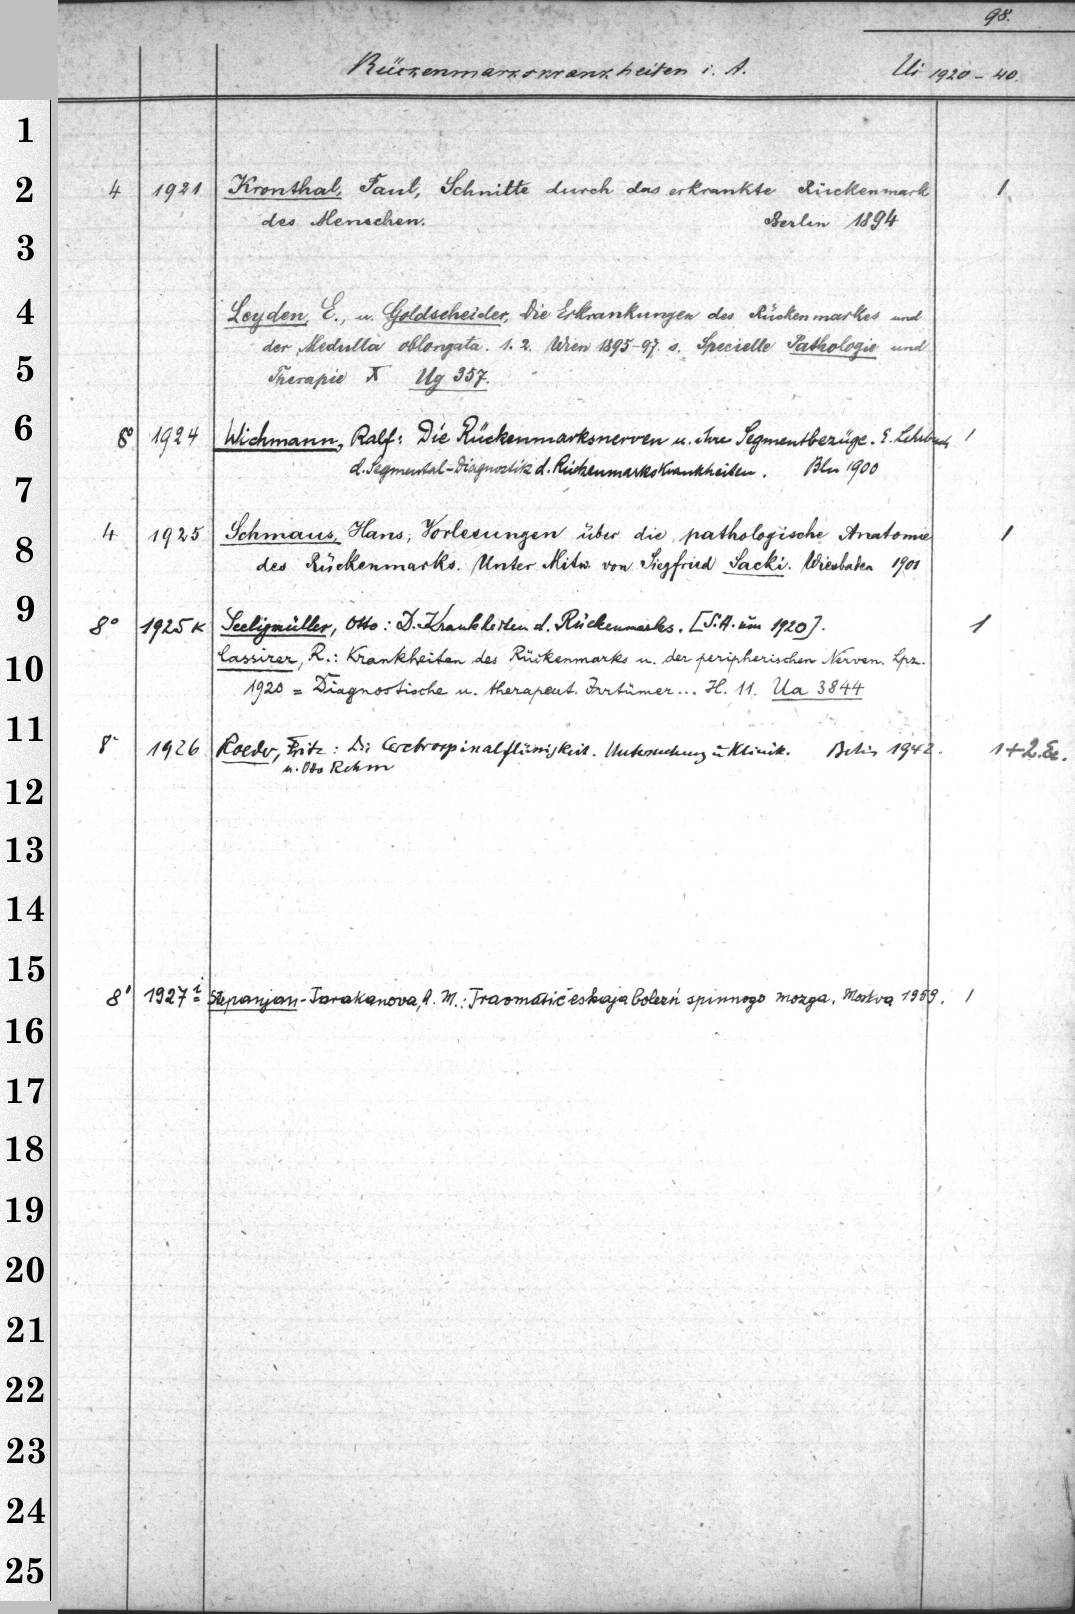 98.
Rückenmarkskrankheiten i. A. Ui 1920-40.
1
2 4 1921 Kronthal, Paul, Schnitte durch das erkrankte Rückenmark 1
des Menschen. Berlin 1894
3
4 Leyden, E., u. Goldscheider, Die Erkrankungen des Rückenmarkes und
der Medulla oblongata. 1. 2. Wien 1895-97. s. Specielle Pathologie und
5 Therapie X Ug 357.
6 8° 1924 Wichmann, Ralf: Die Rückenmarksnerven u. ihre Segmentbezüge. E. Lehrbuch 1
d. Segmental-Diagnostik d. Rückenmarkskrankheiten. Bln 1900
7
8 4 1925 Schmaus, Hans, Vorlesungen über die pathologische Anatomie 1
des Rückenmarks. Unter Mitw. von Siegfried Sacki. Wiesbaden 1901
9 8° 1925 K Seeligmüller, Otto: D. Krankheiten d. Rückenmarks. [S.A. um 1920]. 1
10 Cassirer, R.: Krankheiten des Rückenmarks u. der peripherischen Nerven. Lpz.
1920 = Diagnostische u. therapeut. Irrtümer... H. 11. Ua 3844
11 8° 1926 Roeder, Fritz: Die Cerebrospinalflüssigkeit. Untersuchung u Klinik. Berlin 1942. 1+2.Ex.
u. Otto Rehm
12
13
14
15 8° 1927 i Stepanjan-Tarakanova, A. M.: Travmatičeskaja bolezń spinnogo mozga. Moskva 1959. 1
16
17
18
19
20
21
22
23
24
25